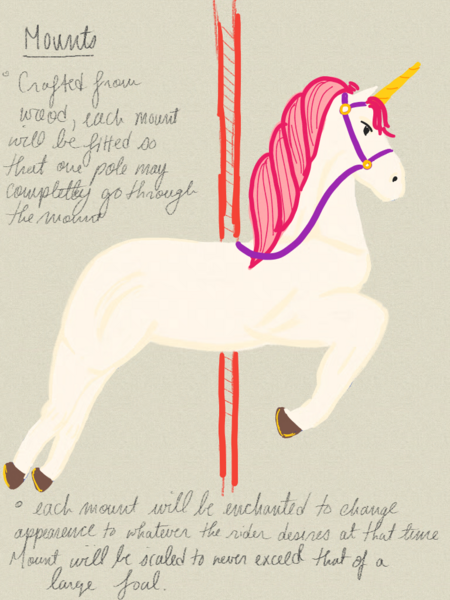 Mounts
° Crafted from
wood, each mount
will be fitted so
that one pole may
completley go through
the mount
° each mount will be enchanted to change
appearence to whatever the rider desires at that time
Mount will be scaled to never exceed that of a
large foal.